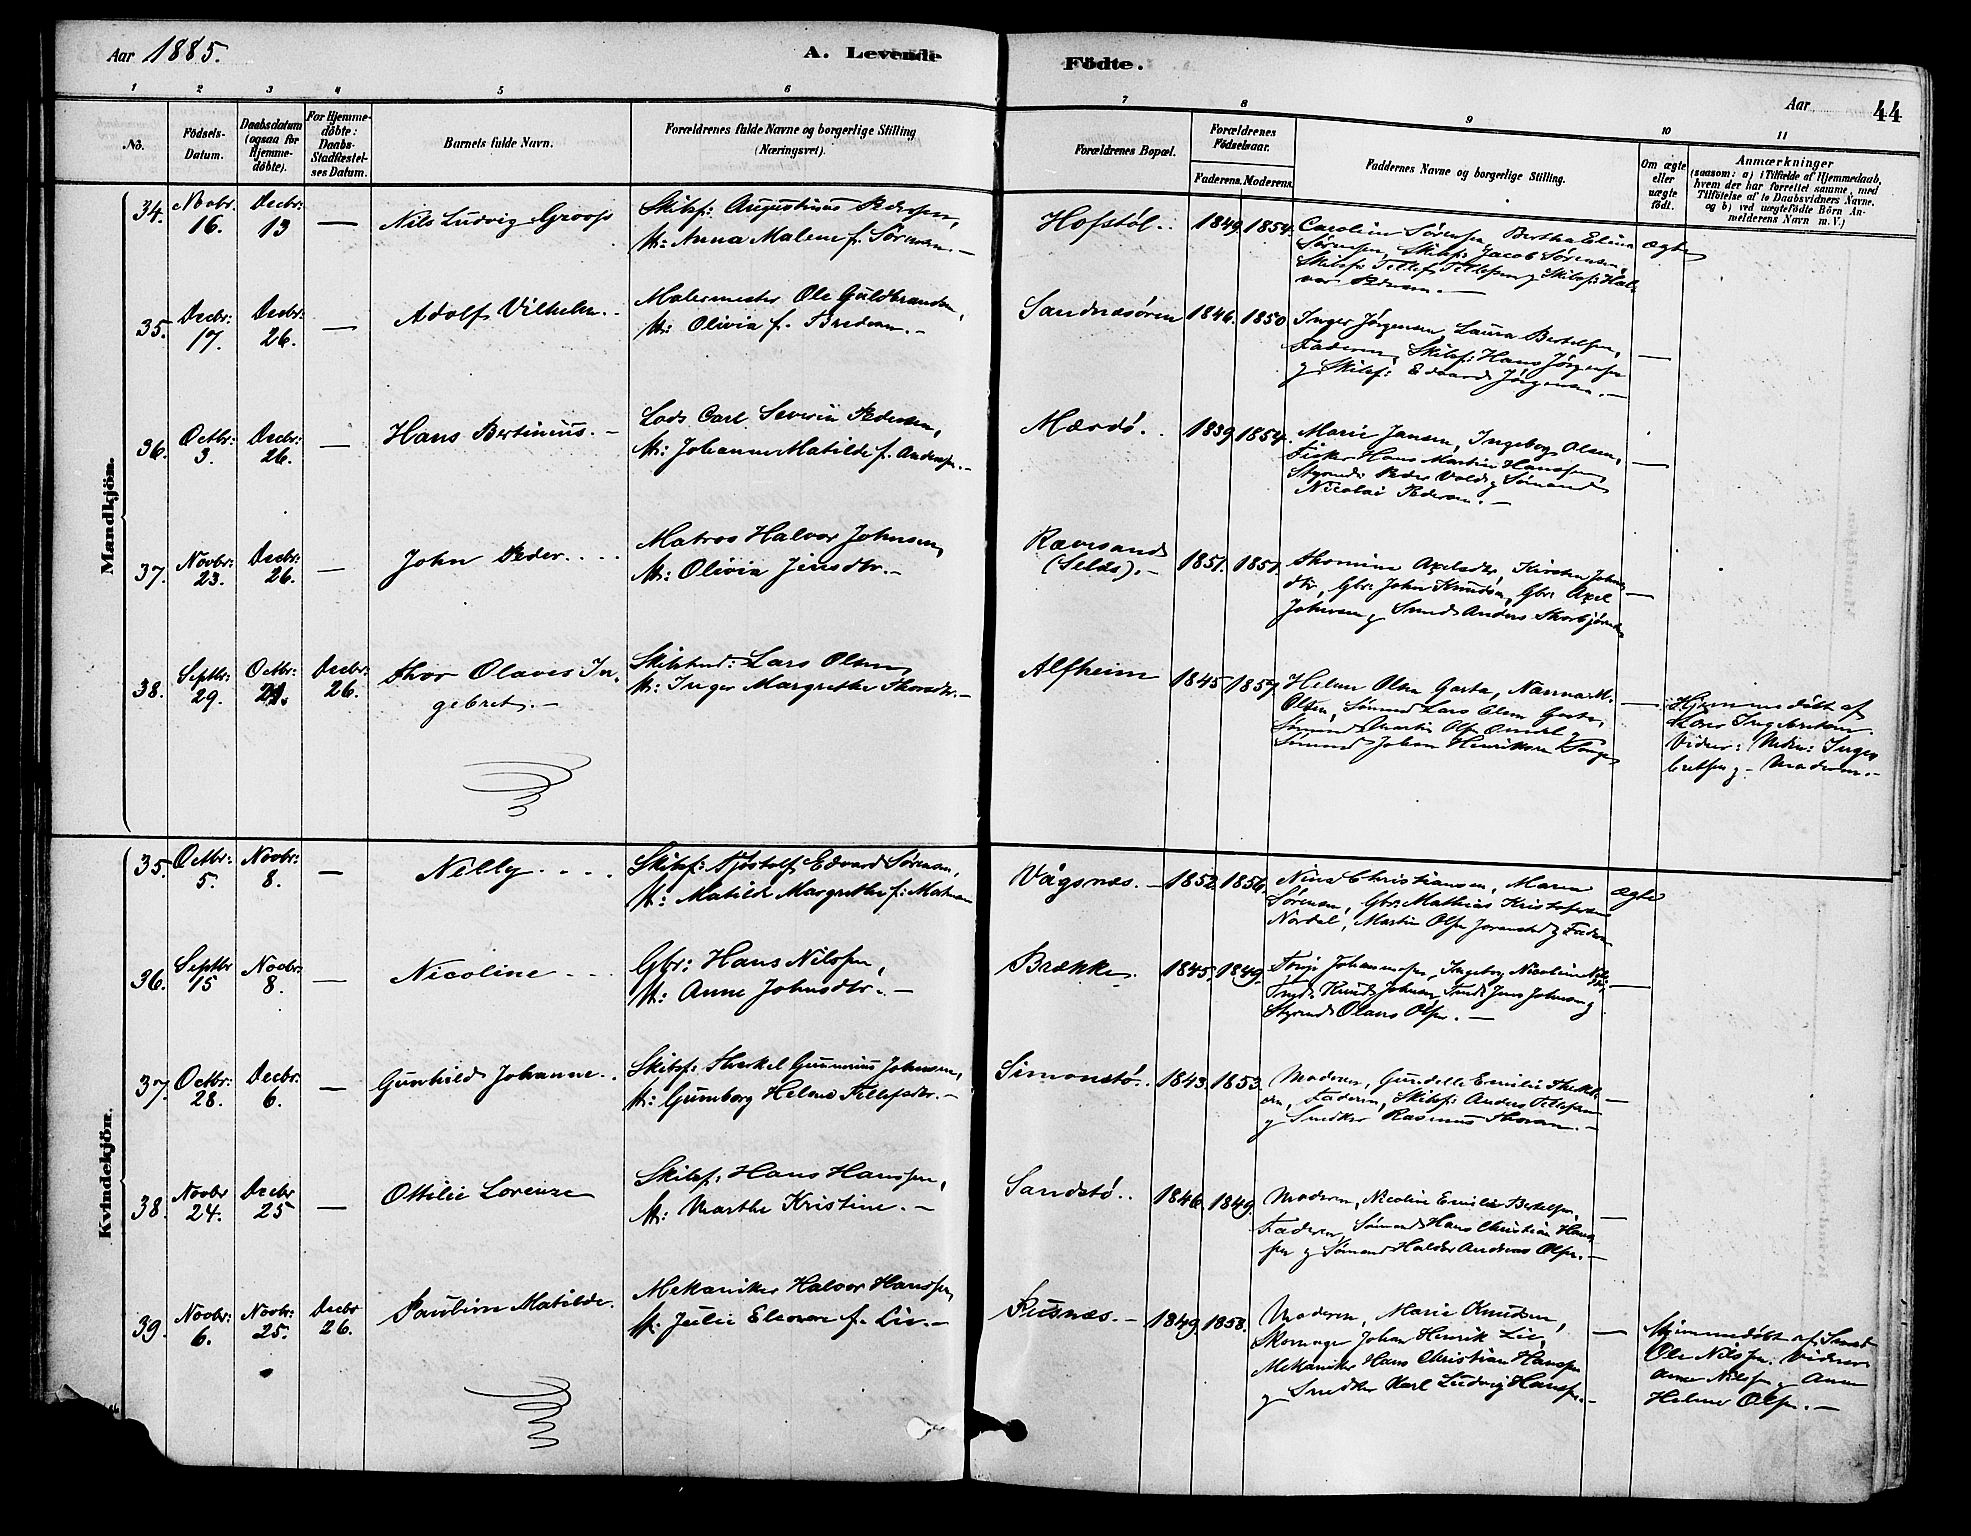 Aar 1885.
A. Levende
Födte.
Aar
44
1 2 3 4 5 6 7 8 9 10 11
No.
Födsels-
Datum.
Daabsdatum
(ogsaa for
Hjemme-
döbte).
For Hjemme-
döbte:
Daabs-
Stadfæstel-
ses Datum.
Barnets fulde Navn.
Forældrenes fulde Navne og borgerlige Stilling
(Næringsvei).
Forældrenes Bopæl.
Forældrenes
Födselsaar.
Faderens. Moderens.
Faddernes Navne og borgerlige Stilling.
Om ægte
eller
uægte
födt.
Anmærkninger
(saasom: a) i Tilfælde af Hjemmedaab,
hvem der har forrettet samme, med
Tilföielse af to Daabsvidners Navne,
og b) ved uægtefödte Börn An-
melderens Navn m. V.)
Mandkjön.
34.
Novbr.
16.
Decbr:
13
—
Nils Ludvig Groos
Skibsf: Augustinus Pedersen,
H: Anna Malene f. Sørensen.—
Hofstøl..
1849. 1854.
Caroline Sørensen, Bertha Elina
Sørensen, Skibsf: Jacob Sørensen,
Skibsf: Tellef Tellefsen og Skibsf: Hal-
vor Pedersen.—
ægte
35.
Decbr:
17.
Decbr:
26.
—
Adolf Vilhelm..
Malermester Ole Guldbrandsen,
H: Olivia f. Bredesen.—
Sandnæsøren
1846. 1850
Inger Jørgensen, Laura Bertelsen,
Faderen, Skibsf: Hans Jørgensen
og Skibsf: Edvard Jørgensen.—
—
36.
Octbr:
3.
Decbr:
26.
—
Hans Bertinius.—
Lods Carl Severin Pedersen,
H: Johanne Matilde f. Andersen.—
Mærdø.
1839 1854.
Marie Jansen, Ingeborg Olsen,
Fisker Hans Martin Hanssen,
Styrmd: Peder Vold og Sømand
Nicolai Pedersen.—
—
37.
Novbr:
23.
Decbr:
26.
—
John Peder....
Matros Halvor Johnsen,
H: Olivia Jensdtr.—
Rævesand
(Selds).—
1851. 1851.
Thomine Axelsdtr, Kirsten Johns-
dtr, Gbr: John Knudsen, Gbr: Axel
Johnsen og Smed Anders Thorbjørnsen
—
38.
Septbr:
29.
Octbr:
21.
Decbr:
26.
Thor Olaves In-
gebret.—
Skibstmd: Lars Olsen,
H: Inger Margrethe Thorsdtr.—
Alfheim
1845 1857.
Helene Olsen Garta, Nanna M.
Olsen, Sømand Lars Olsen Garta,
Sømand Martin Olsen
Sømand Johan Henriksen
—
Hjemmedøbt af
Ingebretsen.
Vidner: Inge-
bretsen og Moderen.—
Kvindekjön.
35.
Octbr:
5.
Novbr:
8.
—
Nelly....
Skibsf: Tjøstolf Edvard Sørensen,
H: Matilde Margrethe f:
Vågsnæs.—
1852. 1856.
Nina Christiansen, Maren
Sørensen, Gbr: Mathias Kristofersen
Nordal, Martin Olsen og Faderen
ægte
36.
Septbr
15
Novbr:
8.
—
Nicoline...
Gbr: Hans Nilssen,
H: Anne Johnsdtr.—
Brække.
1845. 1849.
Johannessen, Ingeborg Nicoline
Knud Johnsen, Jens Johnsen og
Styrmd Olaus Olsen.—
—
37.
Octbr:
28.
Decbr:
6.
—
Gunhild Johanne..
Skibsf: Therkel Gunnerius Johnsen,
H: Gumborg Helene Tellefsdtr.—
Simonstø..
1843. 1853.
Moderen, Gundelle Emilie
Faderen, Skibsf: Anders Tellefsen
og Snedker Rasmus Thorsen.—
—
38.
Novbr
24.
Decbr
25
—
Ottilie Lorense
Skibsf: Hans Hanssen,
H: Marthe Kristine.—
Sandstø..
1846. 1849.
Moderen, Nicoline Emilie Bertelsen,
Faderen, Sømand Hans Christian Hans-
sen og Sømand Haldor Andreas Olsen.—
—
39.
Novbr:
6.
Novbr:
25.
Decbr
26.
Pauline Matilde.
Mekaniker Halvor Hanssen,
H: Julie Elenore f. Liv.—
Pusnæs.—
1849. 1858.
Moderen, Marie Knudsen,
Skomager Johan Henrik Liv,
Mekaniker Hans Christian Hanssen
og Snedker Karl Ludvig Hanssen.—
—
Hjemmedøbt af Smed
Ole Nilssen. Vidner
Anne Nilssen og Anne
Helene Olsen.—